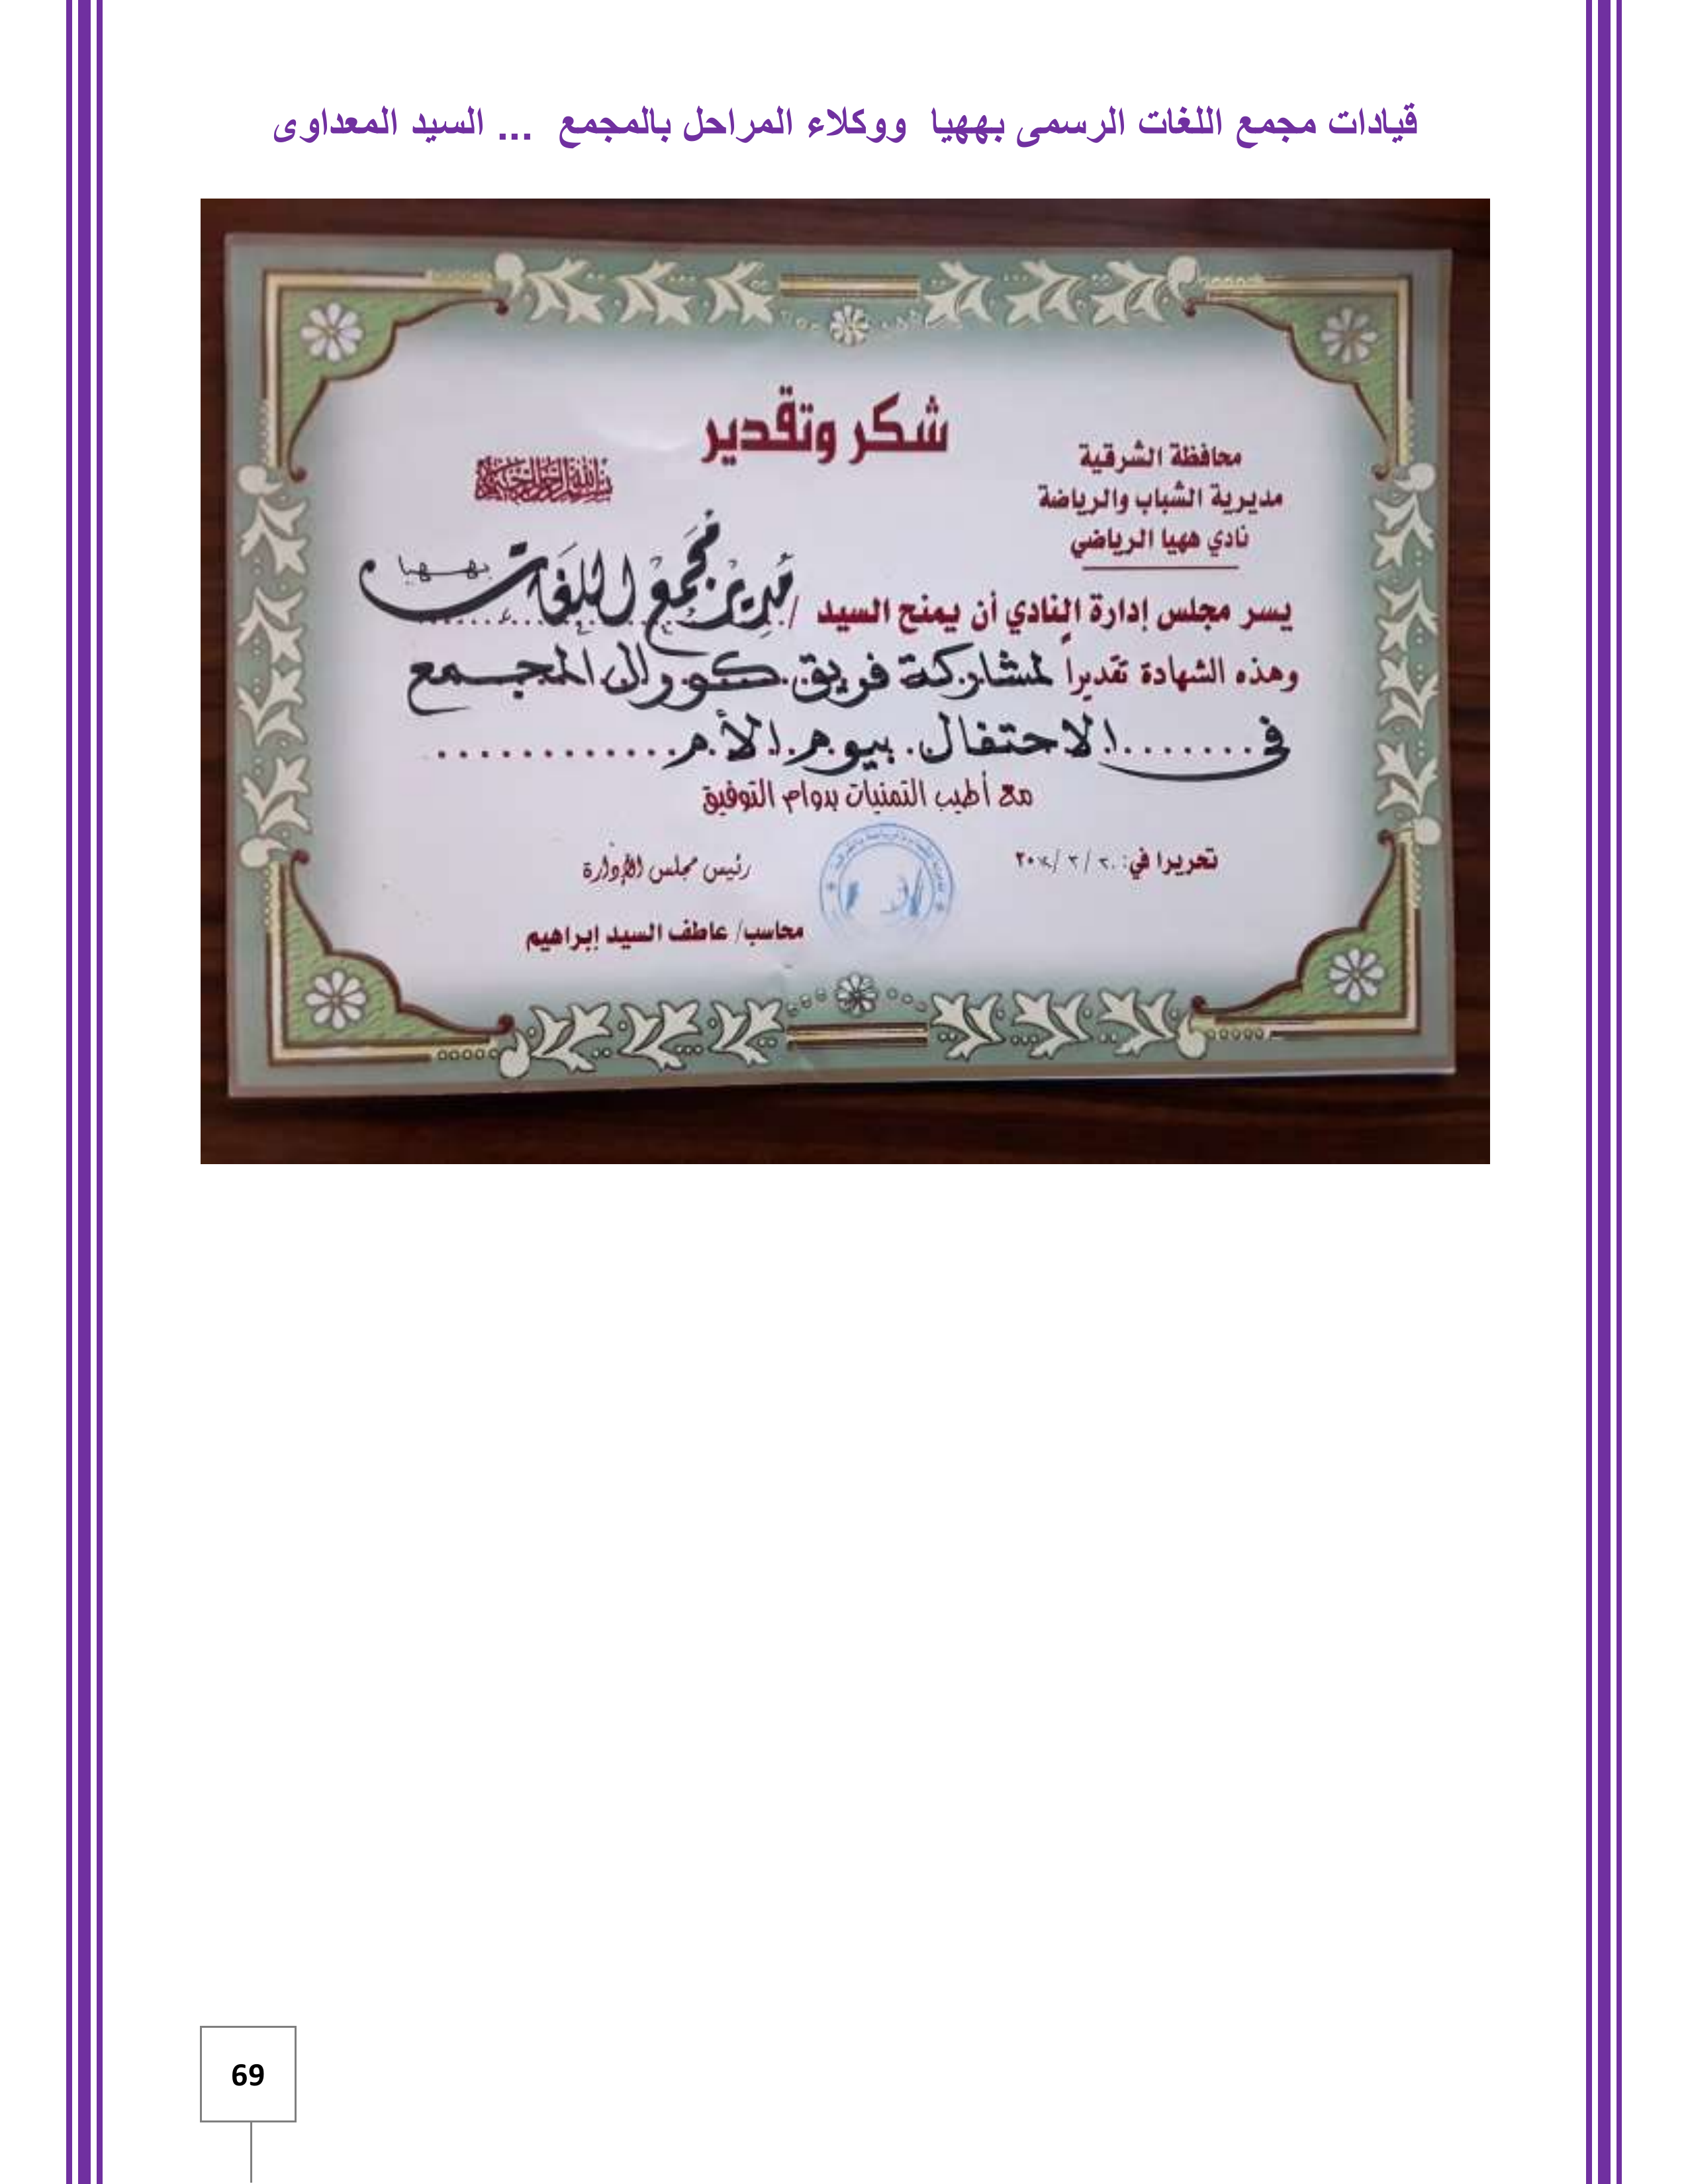 قيادات مجمع اللغات الرسمى بههيا ووكلاء المراحل بالمجمع ... السيد المعداوى
شكر وتقدير
محافظة الشرقية
مديرية الشباب والرياضة
نادي ههيا الرياضي
بسم الله الرحمن الرحيم
يسر مجلس إدارة النادي أن يمنح السيد / مدير مجمع اللغات بههيا
وهذه الشهادة تقديراً لمشاركة فريق كورال المجمع
في ....... الاحتفال بيوم الأم ............
مع أطيب التمنيات بدوام التوفيق
تحريرا في:
رئيس مجلس الإدارة
محاسب/ عاطف السيد إبراهيم
69